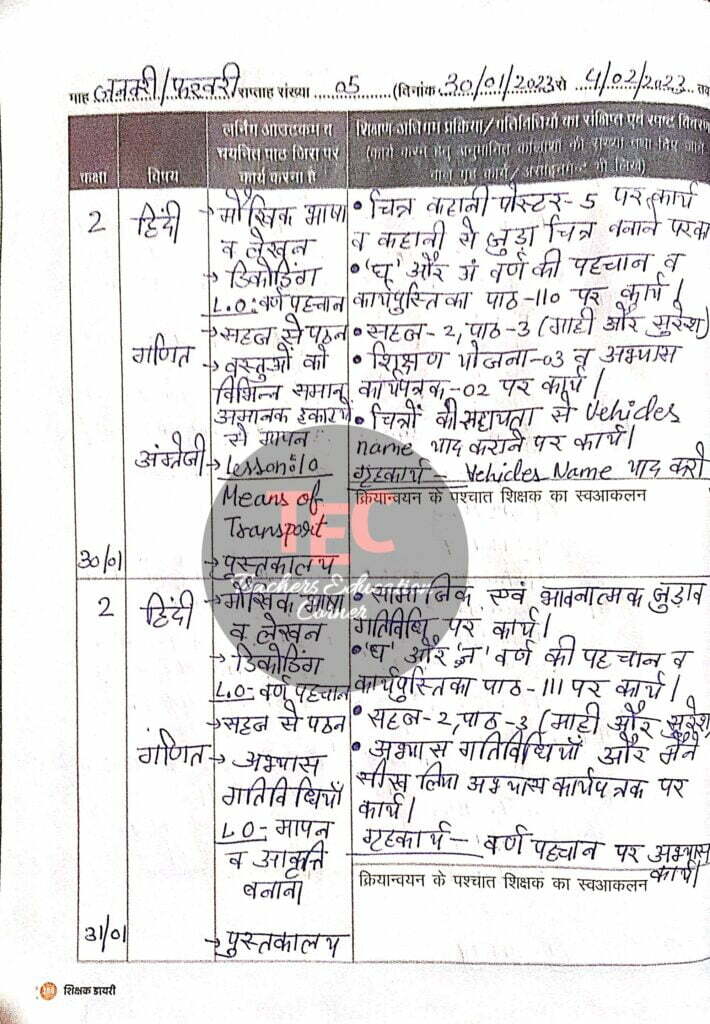 माह जनवरी/फरवरी सप्ताह संख्या 05 (दिनांक 30/01/2023 से 4/02/2023 तक
कक्षा
विषय
लर्निंग आउटकम व
चयनित पाठ जिस पर
कार्य करना है
शिक्षण अधिगम प्रक्रिया/गतिविधियों का संक्षिप्त एवं स्पष्ट विवरण
(कार्य करने हेतु अनुमानित कालांशों की संख्या तथा दिए जाने
वाले गृह कार्य/असाइनमेन्ट भी लिखें)
2
हिंदी
→ मौखिक भाषा
व लेखन
→ डिकोडिंग
L.O: वर्ण पहचान
→ सहज से पठन
• चित्र कहानी पोस्टर-5 पर कार्य
व कहानी से जुड़ा चित्र बनाने पर का
• 'घ' और वर्ण की पहचान व
कार्यपुस्तिका पाठ-110 पर कार्य।
• सहज-2, पाठ-3 (माही और सुरेश)
गणित
→ वस्तुओं को
विभिन्न समान
अमानक इकाइयों
से मापन
• शिक्षण योजना-03 व अभ्यास
कार्यपत्रक-02 पर कार्य।
अंग्रेजी
→ Lesson:10
Means of
Transport
→ पुस्तकालय
• चित्रों की सहायता से Vehicles
name याद कराने पर कार्य।
गृहकार्य – Vehicles Name याद करो
क्रियान्वयन के पश्चात शिक्षक का स्वआकलन
30/01
TEC
Teachers Education
Corner
2
हिंदी
→ मौखिक भाषा
व लेखन
→ डिकोडिंग
L.O- वर्ण पहचान
→ सहज से पठन
• सामाजिक एवं भावनात्मक जुड़ाव
गतिविधि पर कार्य।
• 'घ' और वर्ण की पहचान व
कार्यपुस्तिका पाठ-111 पर कार्य।
• सहज-2, पाठ-3 (माही और सुरेश
गणित
→ अभ्यास
गतिविधियाँ
L.O- मापन
व आकृति
बनाना
• अभ्यास गतिविधियाँ और मैंने
सीख लिया अभ्यास कार्यपत्रक पर
कार्य।
गृहकार्य – वर्ण पहचान पर अभ्यास
कार्य।
क्रियान्वयन के पश्चात शिक्षक का स्वआकलन
31/01
→ पुस्तकालय
शिक्षक डायरी